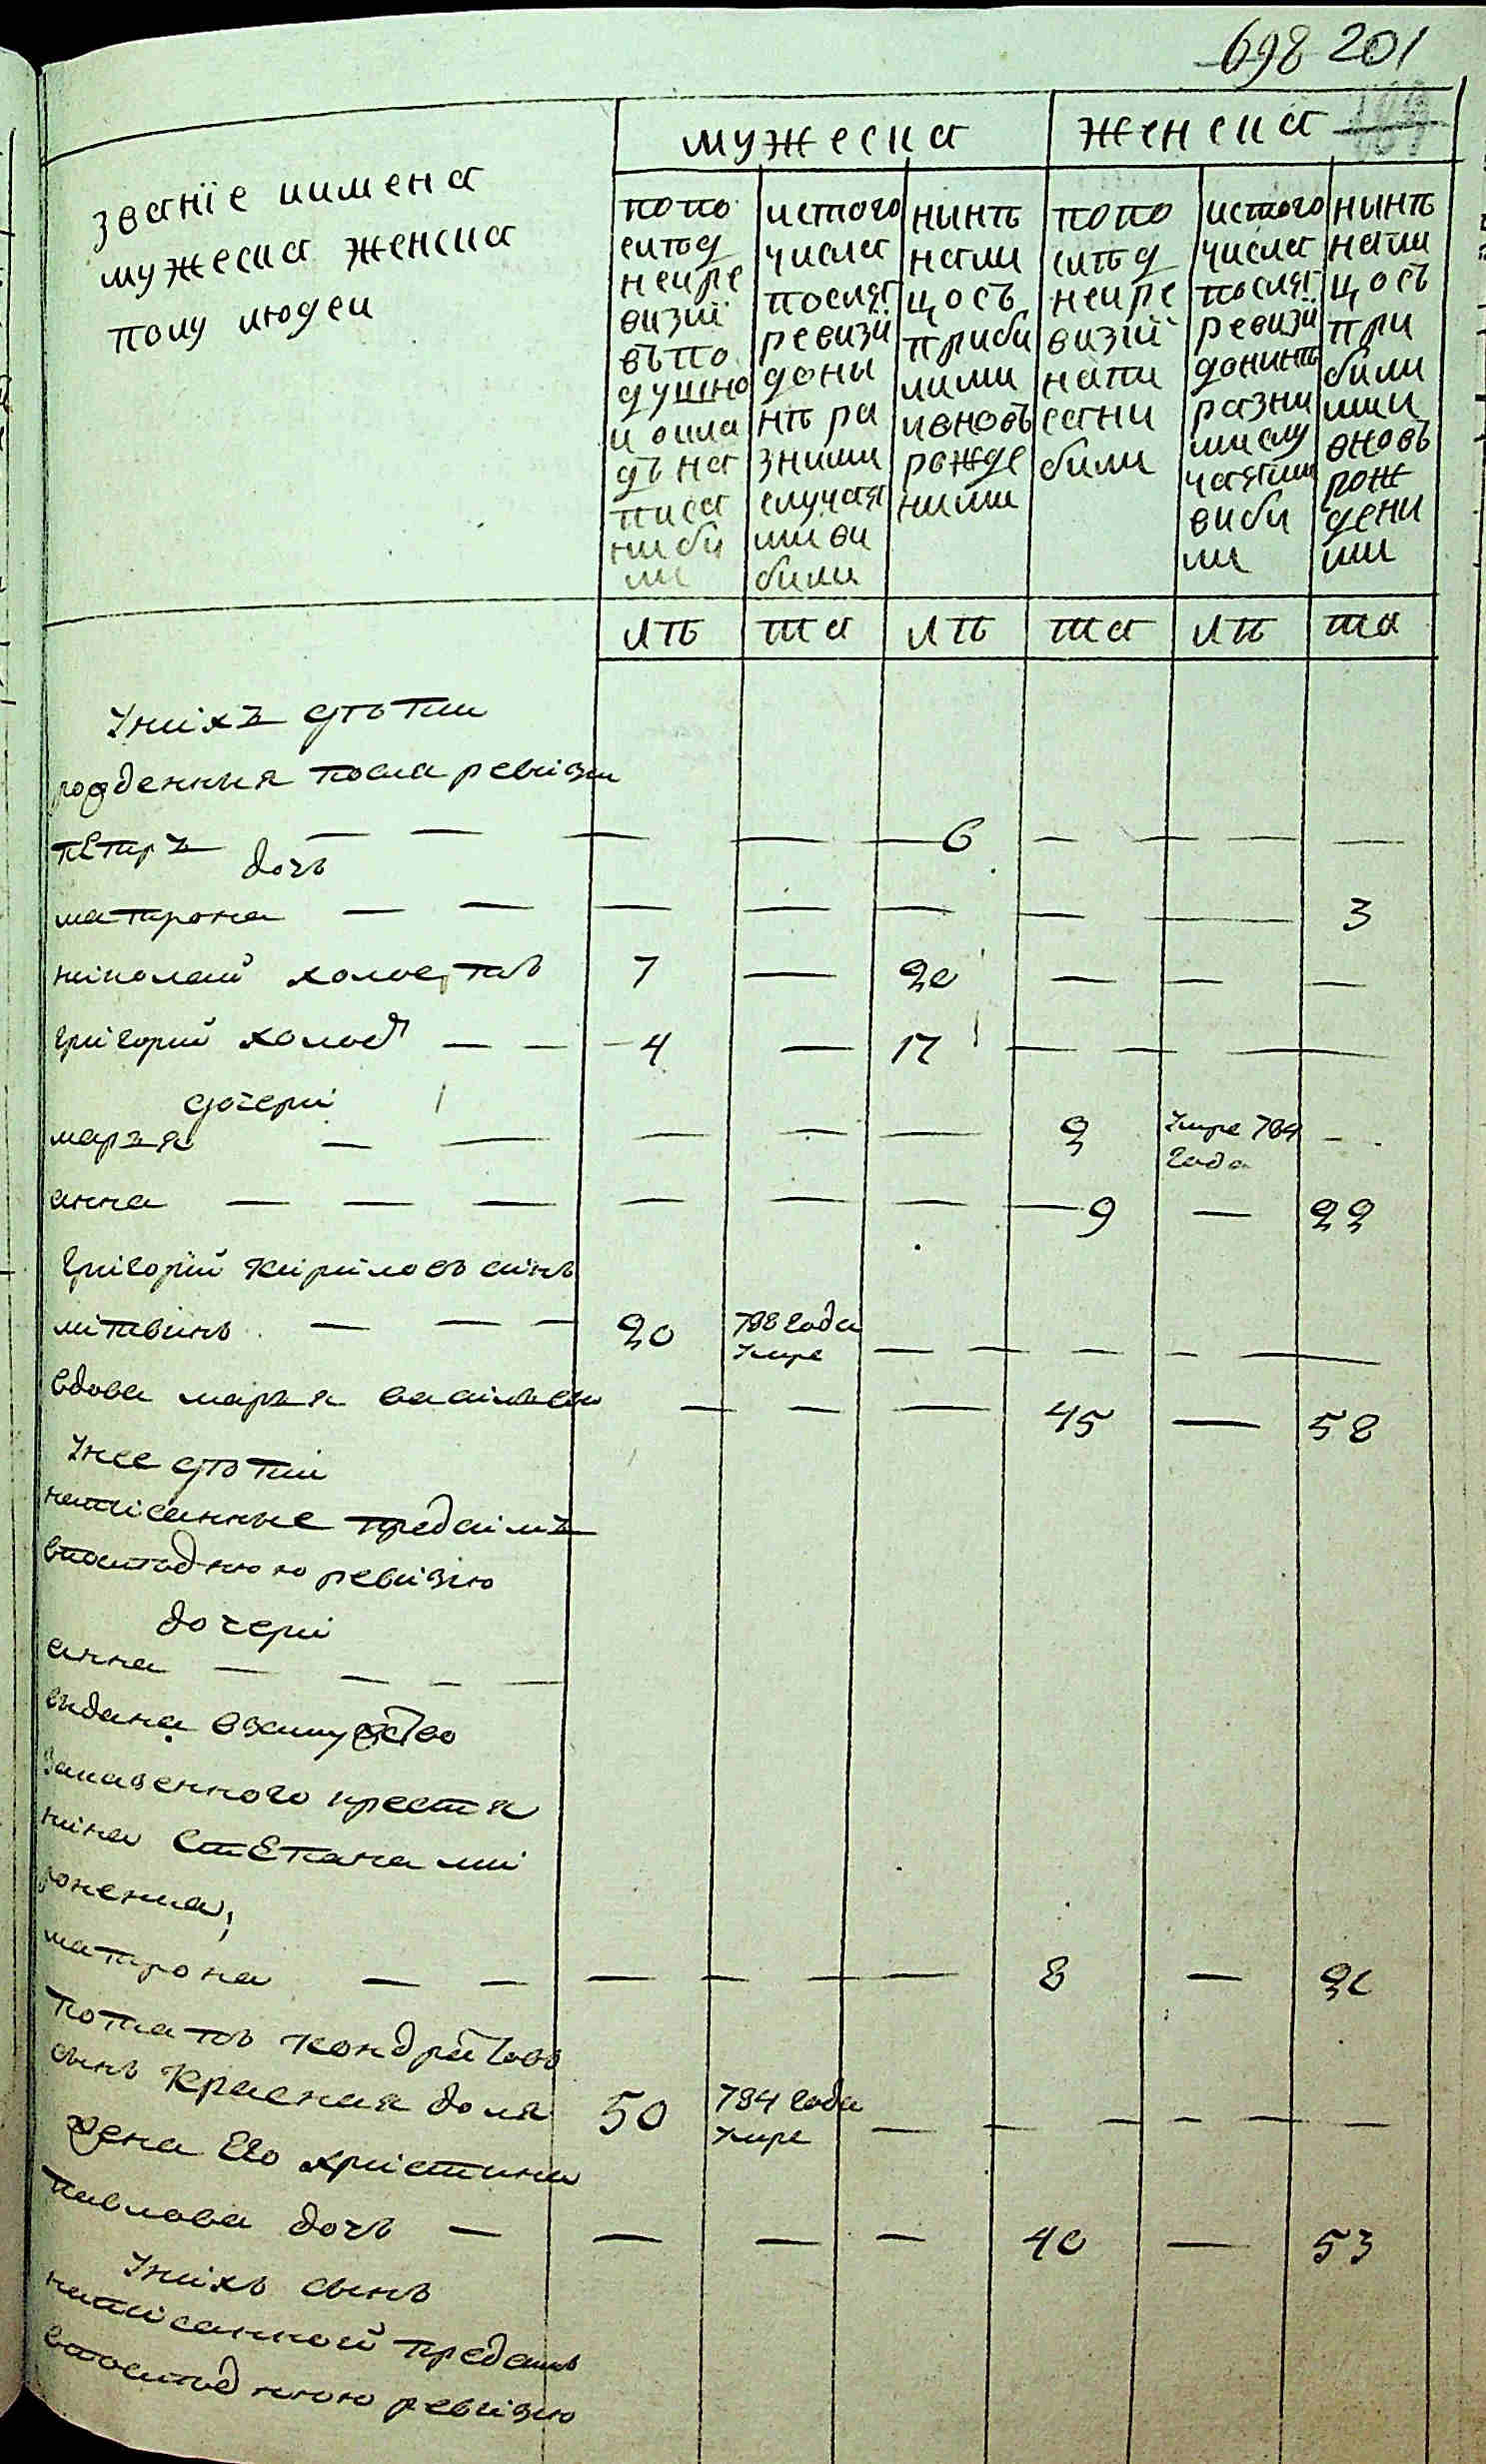 698 201
мужеска женска
званїе иимена
мужеска женска
полу людеи
попо
слѣд
неире
визїї
въпо
душно
и окла
дъ на
писа
ни би
ли
истого
числа
послѣ
ревизїї
доны
нѣ ра
зними
случая
ми ви
били
нынѣ
нали
цосъ
приби
лими
ивновъ
рожде
ними
попо
слѣд
неире
визїї
напи
сани
били
истого
числа
послѣ
ревизїї
донинѣ
разни
ми слу
чаями
виби
ли
нынѣ
нали
цосъ
при
били
ми
вновъ
рож
дени
ми
лѣ та лѣ та лѣ та
Унїхъ дѣти
рожденния посла ревїзїи
петръ — — — — 6 — — — —
дочь
матрона — — — — — — — 3
нїколай холостъ 7 — 20 — — —
григорий холост — — 4 — 17 — — — —
дочери
маръя — — — — — 9 Умре 784 года —
анна — — — — — — — 9 — 22
Григорїй Кирилов синъ
литвинъ — — — 20 788 года Умре — — — — — —
вдова маръя васильева — — — 45 — 58
Унее дѣтї
написанные предсимъ
впослѣднюю ревизїю
дочерї
анна — — — —
видана взамужство
заказенного крестя
нина Степана ми
роненка,
матрона — — — — — — 8 — 21
потапъ Кондратовъ
сынъ Красная доля 50 784 года Умре — — — — — —
жена Его христина
павлова дочъ — — — — 40 — 53
Унїхъ сынъ
написанной предсимъ
впослѣднюю ревизїю